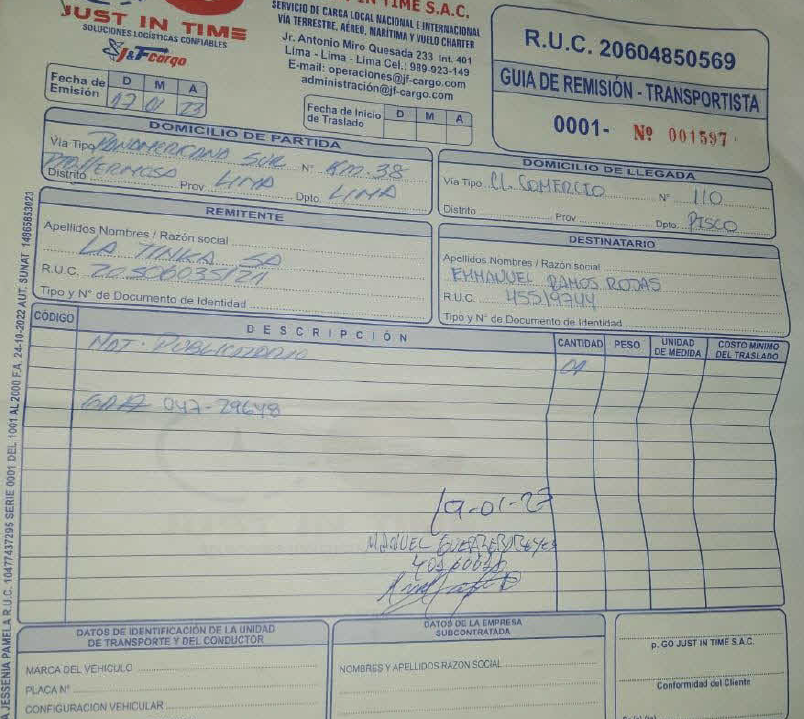 IN TIME S.A.C.
JUST IN TIME
SOLUCIONES LOGÍSTICAS CONFIABLES
J&F cargo
SERVICIO DE CARGA LOCAL NACIONAL E INTERNACIONAL
VÍA TERRESTRE, AÉREO, MARÍTIMA Y VUELO CHARTER
Jr. Antonio Miro Quesada 233 Int. 401
Lima - Lima - Lima Cel.: 989-923-149
E-mail: operaciones@jf-cargo.com
administración@jf-cargo.com
R.U.C. 20604850569
GUIA DE REMISIÓN - TRANSPORTISTA
0001- Nº 001597
Fecha de Emisión D M A
17 01 23
Fecha de Inicio de Traslado D M A
DOMICILIO DE PARTIDA
Vía Tipo PANAMERICANA SUR N° KM.38
Distrito PTAHERMOSA Prov LIMA Dpto. LIMA
DOMICILIO DE LLEGADA
Vía Tipo CL. COMERCIO N° 110
Distrito Prov Dpto. PISCO
REMITENTE
Apellidos Nombres / Razón social
LA TINKA SA
R.U.C. 20506035121
Tipo y N° de Documento de Identidad
DESTINATARIO
Apellidos Nombres / Razón social
EMMANUEL RAMOS ROJAS
R.U.C. 45519744
Tipo y N° de Documento de Identidad
CÓDIGO DESCRIPCIÓN CANTIDAD PESO UNIDAD DE MEDIDA COSTO MINIMO DEL TRASLADO
MAT. PUBLICITARIO
047-29648
19-01-23
MANUEL GUERRERO REYES
DATOS DE IDENTIFICACIÓN DE LA UNIDAD DE TRANSPORTE Y DEL CONDUCTOR
MARCA DEL VEHICULO
PLACA N°
CONFIGURACION VEHICULAR
DATOS DE LA EMPRESA SUBCONTRATADA
NOMBRES Y APELLIDOS RAZON SOCIAL
p. GO JUST IN TIME S.A.C.
Conformidad del Cliente
A JESSENIA PAMELA R.U.C. 10477437295 SERIE 0001 DEL 1001 AL 2000 F.A. 24-10-2022 AUT. SUNAT 14965853023